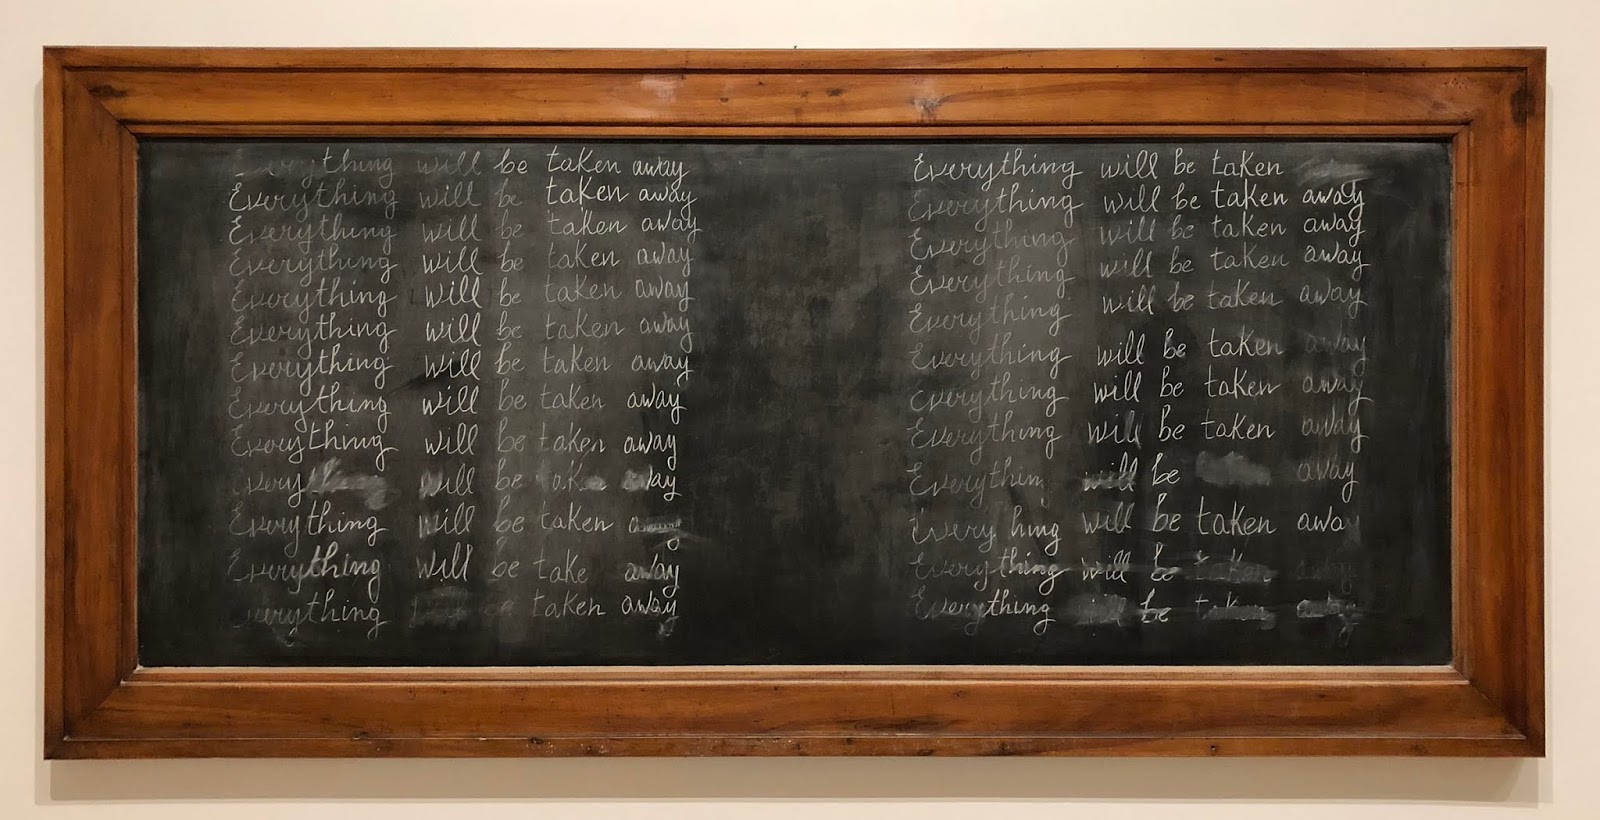 Everything will be taken away
Everything will be taken away
Everything will be taken away
Everything will be taken away
Everything will be taken away
Everything will be taken away
Everything will be taken away
Everything will be taken away
Everything will be taken away
Every will be away
Everything will be taken
Everything will be take away
Everything be taken away
Everything will be taken
Everything will be taken away
Everything will be taken away
Everything will be taken away
Everything will be taken away
Everything will be taken away
Everything will be taken away
Everything will be taken away
Everything will be away
Every hing will be taken awa
Everything will be taken
Everything be taken